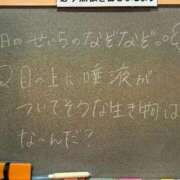 月のせいらのなぞなぞ。
Q目の上に唾液が
ついてそうな生き物は
な〜んだ?